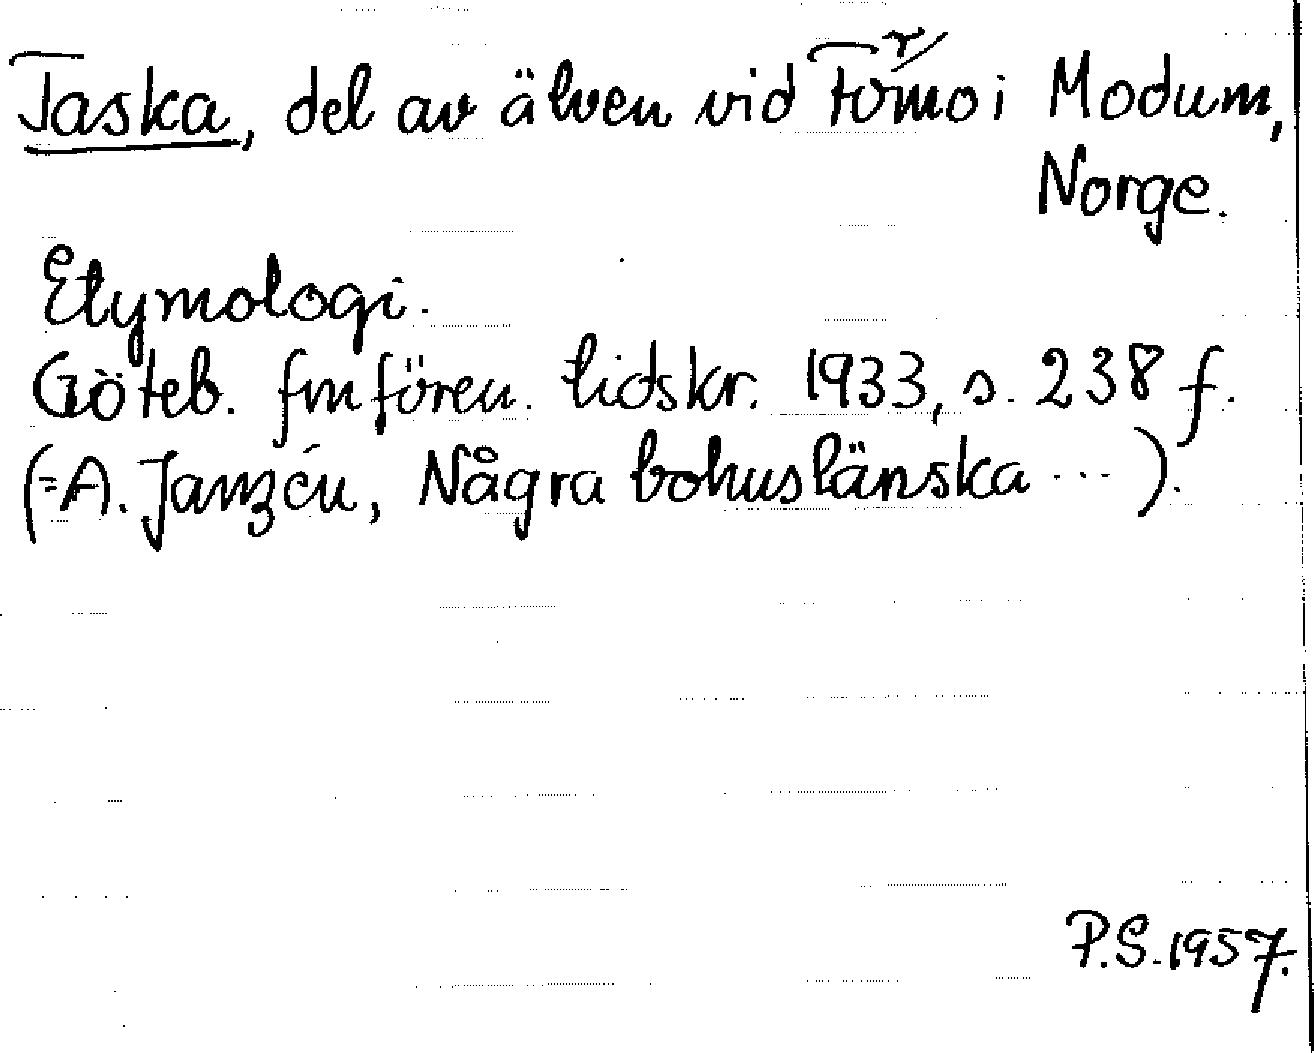 Taska, del av älven vid Formo i Modum,
Norge.
Etymologi.
Göteb. fmfören. tidskr. 1933, s. 238 f.
(=A. Janzén, Några bohuslänska ...).
P.S. 1957.